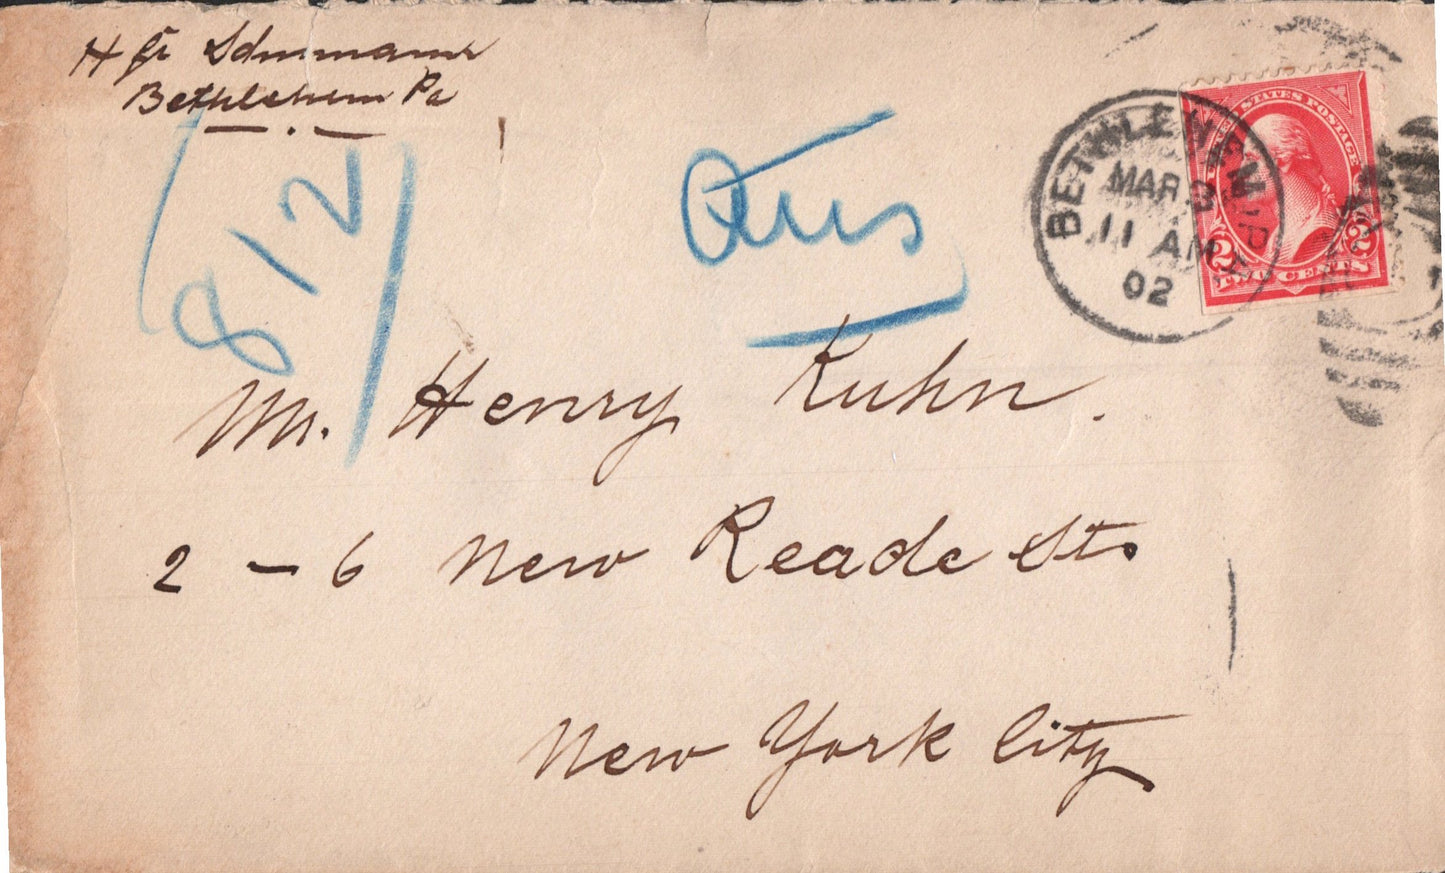 Bethlehem Pa
812
Ans
BETHLEHEM, PA.
MAR 3
11 AM
02
UNITED STATES POSTAGE
2 2
TWO CENTS
Mr. Henry Kuhn.
2 – 6 New Reade St.
New York City